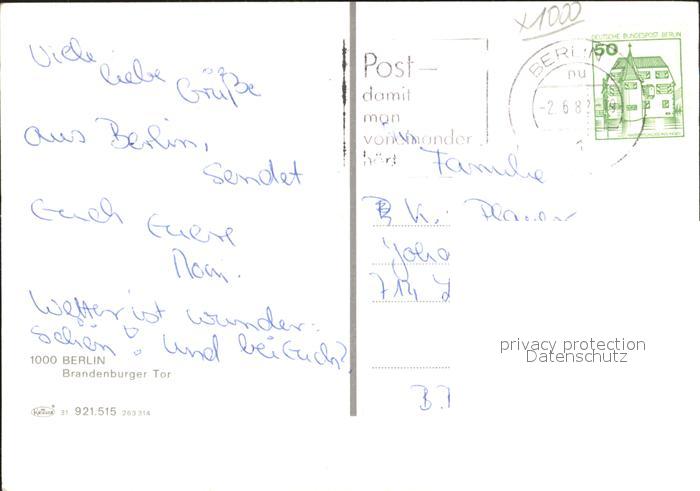 Viele
liebe
Grüße
aus Berlin,
sendet
Euch Euere
Wetter ist wunder-
schön! Und bei Euch?
1000 BERLIN
Brandenburger Tor
Krüger 31 921.515 263 314
x1000
DEUTSCHE BUNDESPOST BERLIN
50
BERLIN
nu
-2.6.8
1
Post–
damit
man
voneinander
hört
Familie
K.
714
B.
privacy protection
Datenschutz